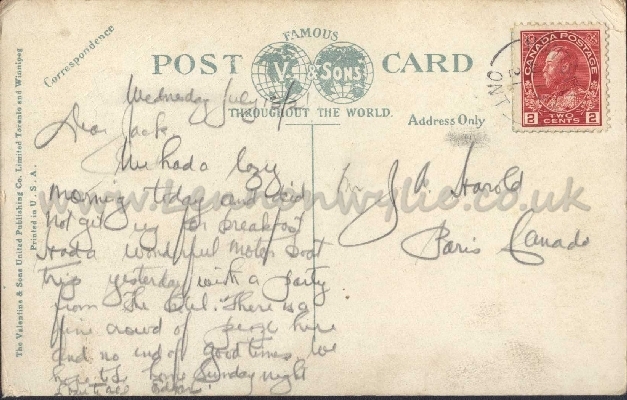 Correspondence
FAMOUS
POST CARD
V. & SONS
THROUGHOUT THE WORLD.
Address Only
CANADA POSTAGE
2 TWO CENTS 2
ONT
The Valentine & Sons United Publishing Co. Limited Toronto and Winnipeg
Printed in U. S. A.
Wednesday July
Dear Jack
We had a lazy
morning today and did
not get up for breakfast
Had a wonderful motor boat
trip yesterday with a party
from The Hotel. There is a
fine crowd of people here
and no end of good times we
hope to be home Sunday night
J. A. Harold
Paris Canada
www.zenden wylie.co.uk